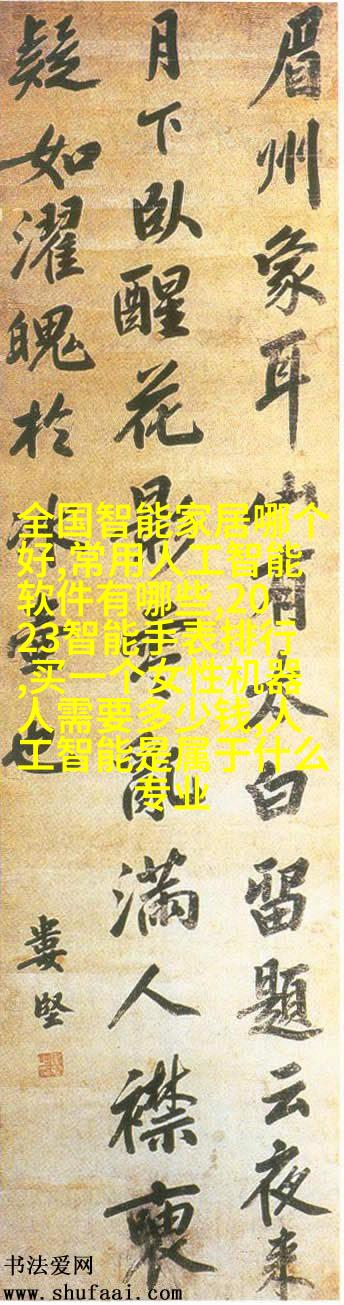 眉州象耳山有太白留題云夜来
月下臥醒花影零亂滿人襟
疑如濯魄於冰壺也
婁堅
全国智能家居哪个
好,常用人工智能
软件有哪些,20
23智能手表排行
,买一个女性机器
人需要多少钱,人
工智能是属于什么
专业
书法爱网
www.shufaai.com